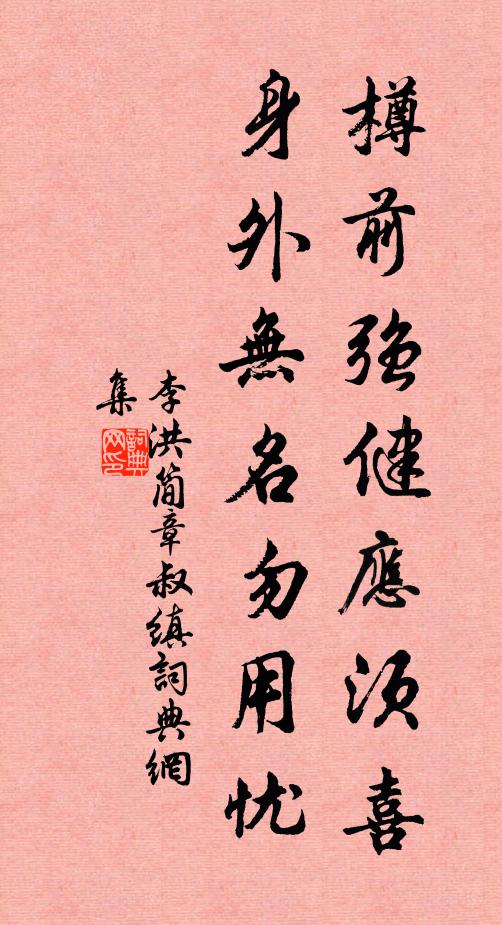 樽前強健應須喜
身外無名勿用忧
李洪簡章叔縝詞典網
集
詞典
网印